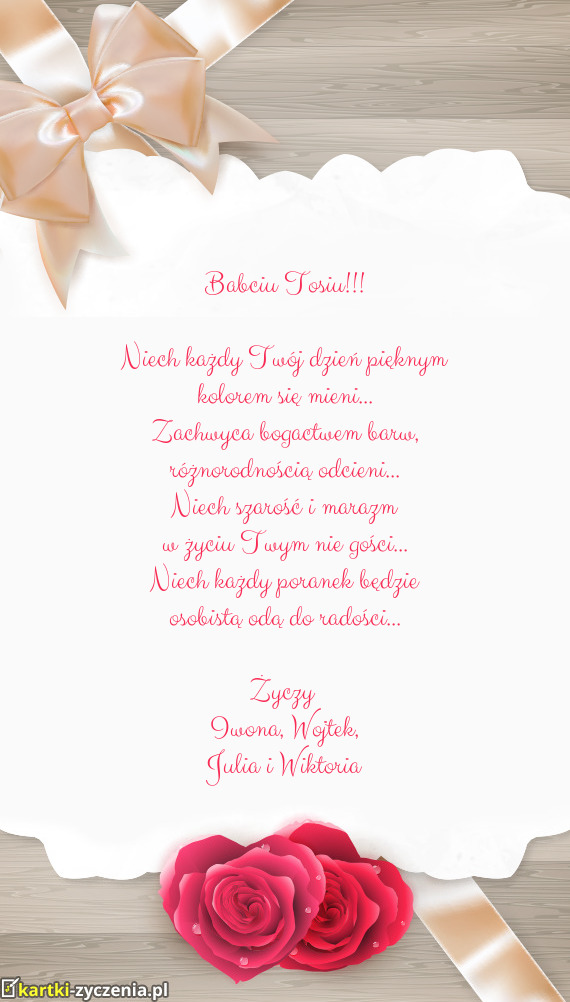 Babciu Tosiu!!!
Niech każdy Twój dzień pięknym
kolorem się mieni...
Zachwyca bogactwem barw,
różnorodnością odcieni...
Niech szarość i marazm
w życiu Twym nie gości...
Niech każdy poranek będzie
osobistą odą do radości...
Życzy
Iwona, Wojtek,
Julia i Wiktoria
kartki-zyczenia.pl